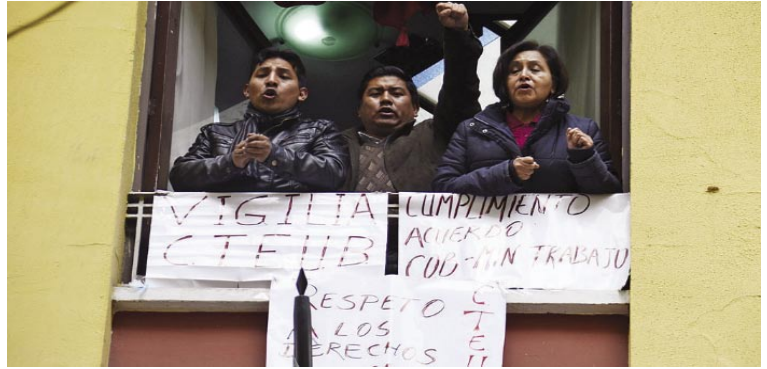 VIGILIA
CTEUB
CUMPLIMIENTO
ACUERDO
COB-MIN TRABAJO
RESPETO
A LOS
DERECHOS
CTEU